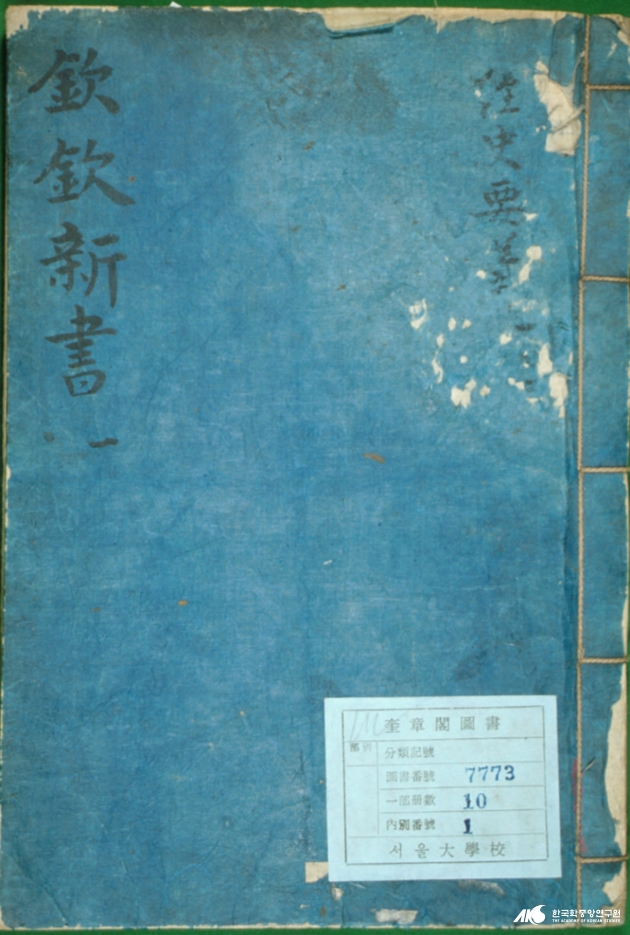 欽欽新書 一
經史要義
奎章閣圖書
部別
分類記號
圖書番號 7773
一部冊數 10
內別番號 1
서울大學校
AKS 한국학중앙연구원
THE ACADEMY OF KOREAN STUDIES